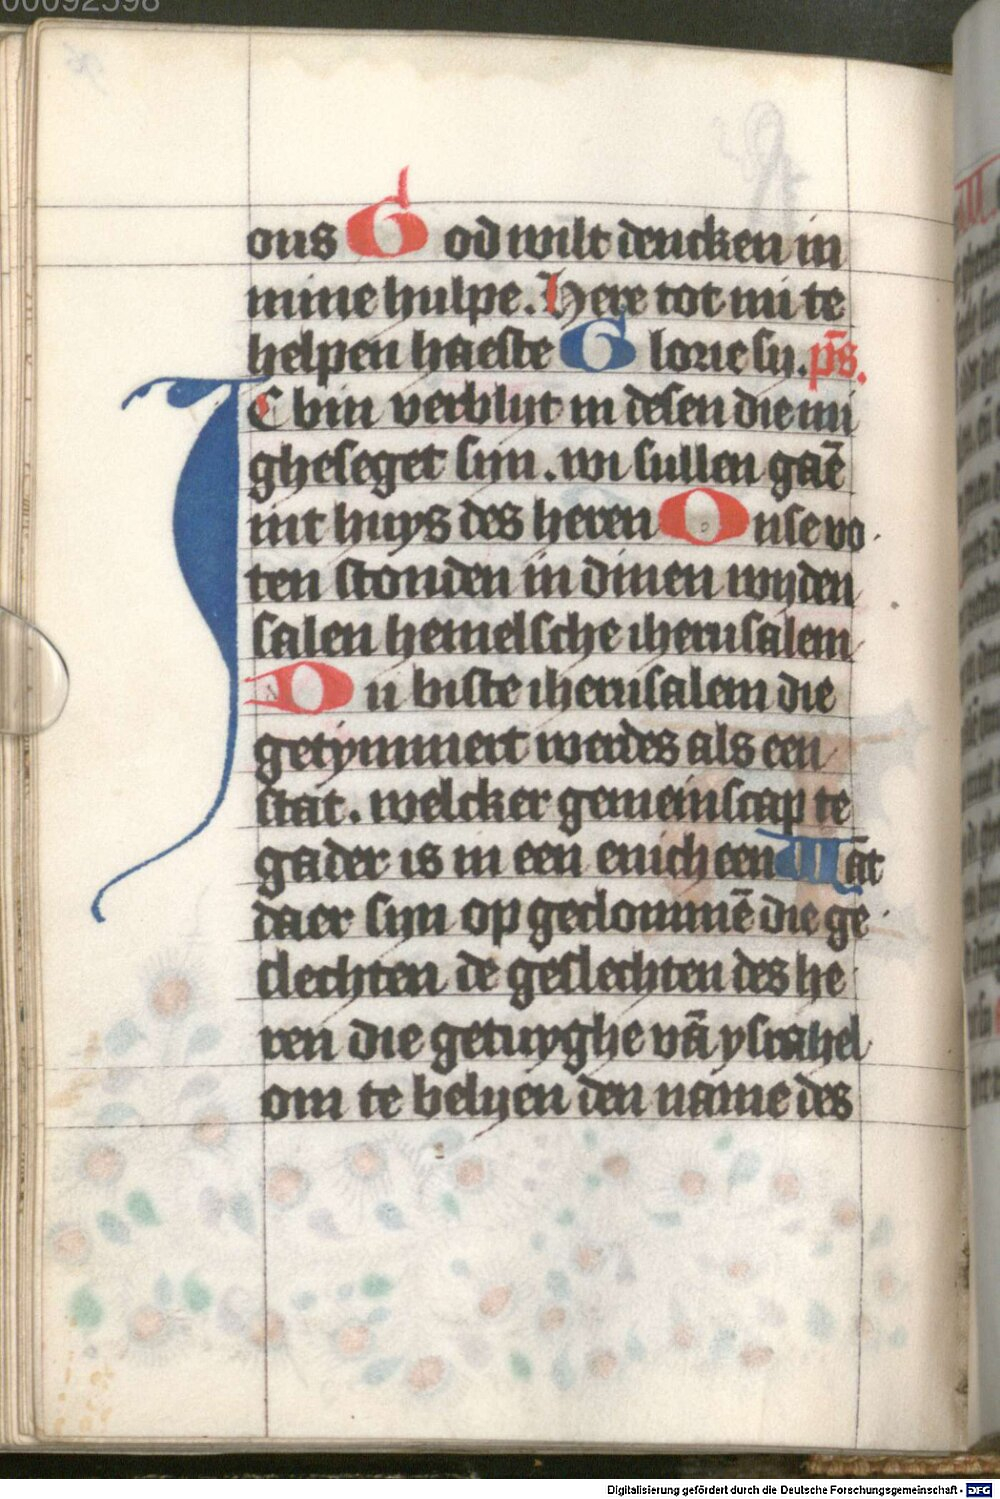 00092598
ons God wilt dencken in
mine hulpe. Here tot mi te
helpen haeste Glorie sy. ps̄.
Ic bin verblijt in desen die mi
gheseget sijn. wi sullen gaē
int huys des heren Onse vo
ten stonden in dinen wijden
salen hemelsche iherusalem
Du biste iherusalem die
getymmert werdes als een
stat. welcker gemeinscap te
gader is in een enich een Wāt
daer sijn op geclommē die ge
slechten de geslechten des he
ren die getuyghe vā ysrahel
om te belyen den name des
Digitalisierung gefördert durch die Deutsche Forschungsgemeinschaft - DFG